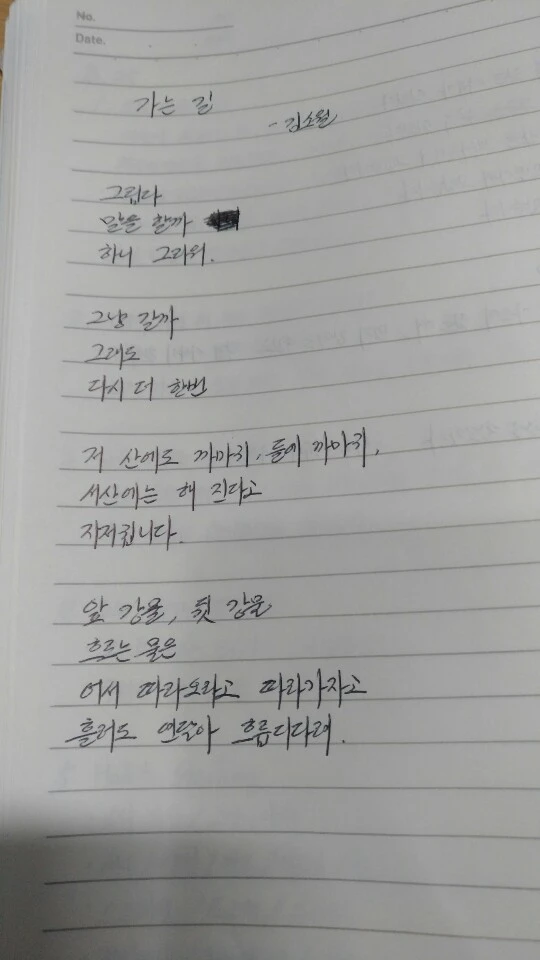 No.
Date.
가는 길
- 김소월
그립다
말을 할까
하니 그리워.
그냥 갈까
그래도
다시 더 한번
저 산에도 까마귀, 들에 까마귀,
서산에는 해 진다고
지저귑니다.
앞 강물, 뒷 강물
흐르는 물은
어서 따라오라고 따라가자고
흘러도 연달아 흐릅디다려.